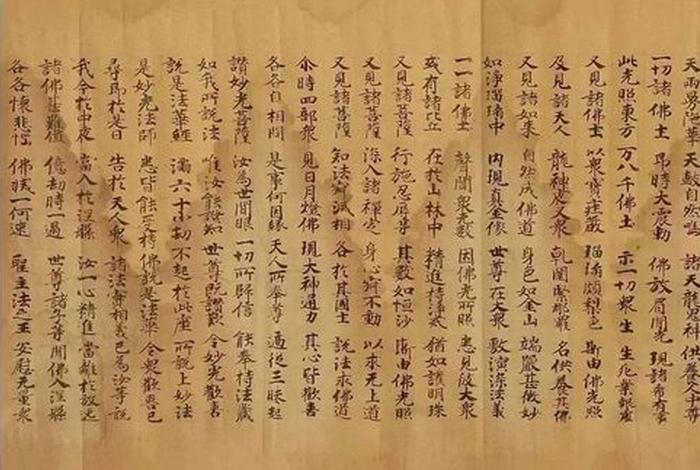 天雨曼陀華 天鼓自然鳴 諸天龍鬼神 供養人中尊
一切諸佛土 即時大震動 佛放眉間光 現諸希有事
此光照東方 万八千佛土 示一切衆生 生死業報處
又見諸佛土 以衆寶莊嚴 瑠璃頗梨色 斯由佛光照
及見諸天人 龍神夜叉衆 乹闥緊那羅 各供養其佛
又見諸如来 自然成佛道 身色如金山 端嚴甚微妙
如淨瑠璃中 内現真金像 世尊在大衆 敷演深法義
一一諸佛土 聲聞衆无數 因佛光所照 悉見彼大衆
或有諸比丘 在於山林中 精進持淨戒 猶如護明珠
又見諸菩薩 行施忍辱等 其數如恒沙 斯由佛光照
又見諸菩薩 深入諸禪定 身心寂不動 以求无上道
又見諸菩薩 知法寂滅相 各於其國土 說法求佛道
尒時四部衆 見日月燈佛 現大神通力 其心皆歡喜
各各自相問 是事何因緣 天人所奉尊 適從三昧起
讃妙光菩薩 汝為世間眼 一切所歸信 能奉持法藏
如我所說法 唯汝能證知 世尊既讃歎 令妙光歡喜
說是法華經 滿六十小劫 不起於此座 所說上妙法
是妙光法師 悉皆能受持 佛說是法華 令衆歡喜已
尋即於是日 告於天人衆 諸法實相義 已為汝等說
我今於中夜 當入於涅槃 汝一心精進 當離於放逸
諸佛甚難值 億劫時一遇 世尊諸子等 聞佛入涅槃
各各懷悲惱 佛滅一何速 聖主法之王 安慰无量衆